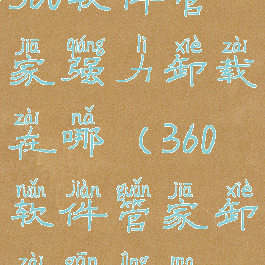 360软件管
jiā qiáng lì xiè zài
家强力卸载
zài nǎ
在哪(360
ruǎn jiàn guǎn jiā xiè
软件管家卸
zài gān jìng ma